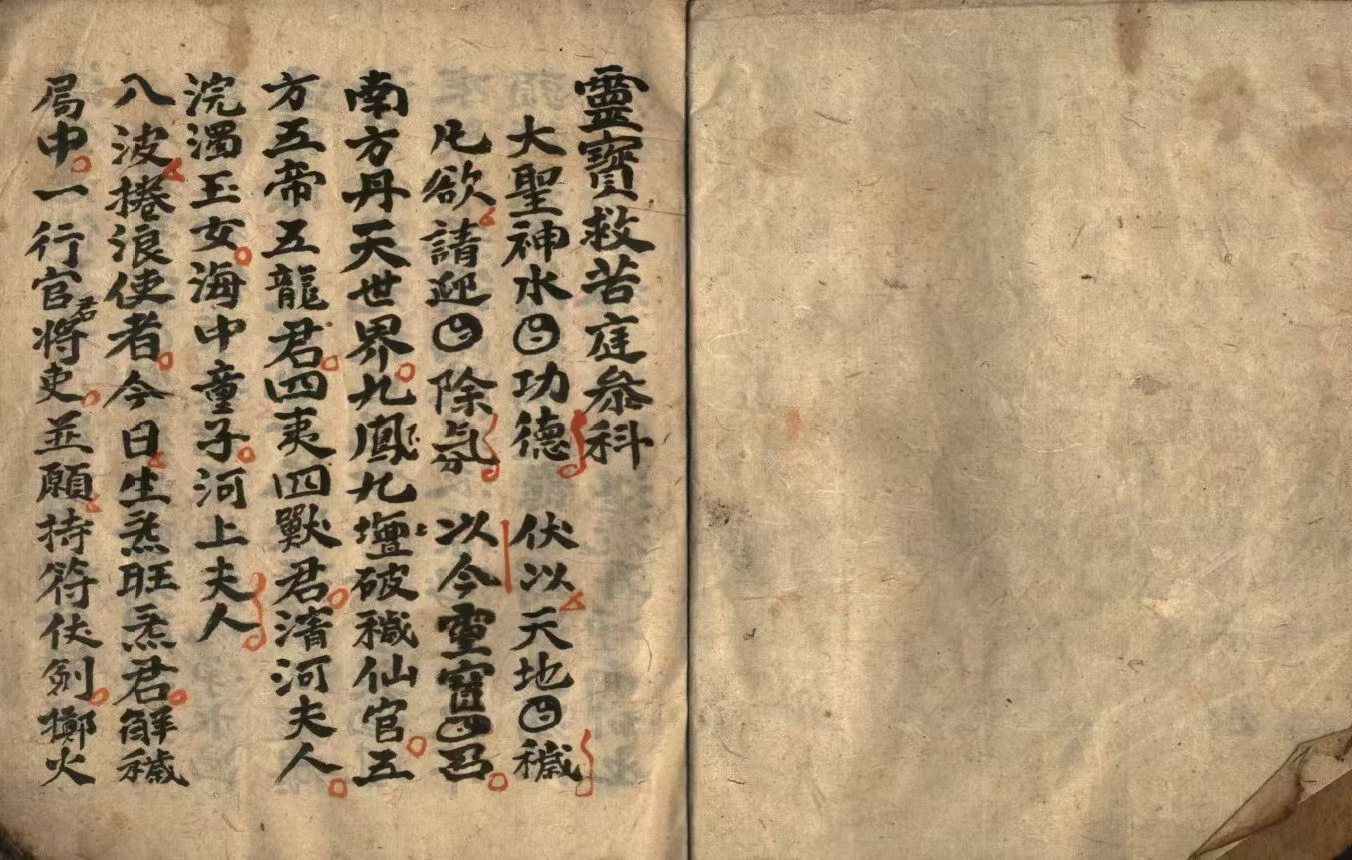 靈寶救苦庭叅科
大聖神水㊁功德 伏以天地㊁穢
凡欲請迎㊁除氛 以今靈寶㊁召
南方丹天世界九鳳九壇破穢仙官五
方五帝五龍君四夷四獸君濟河夫人
浣濁玉女海中童子河上夫人
八波捲浪使者今日生炁旺炁君解穢
局中一行官君將吏並願持符伏劍擲火